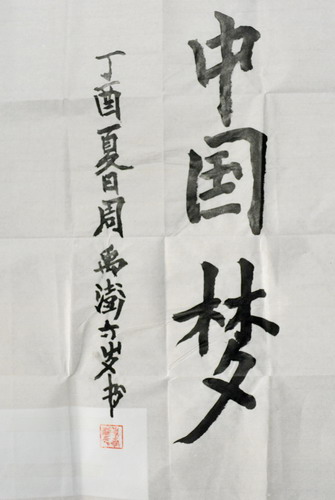 中国梦
丁酉夏日周禹澎六岁书